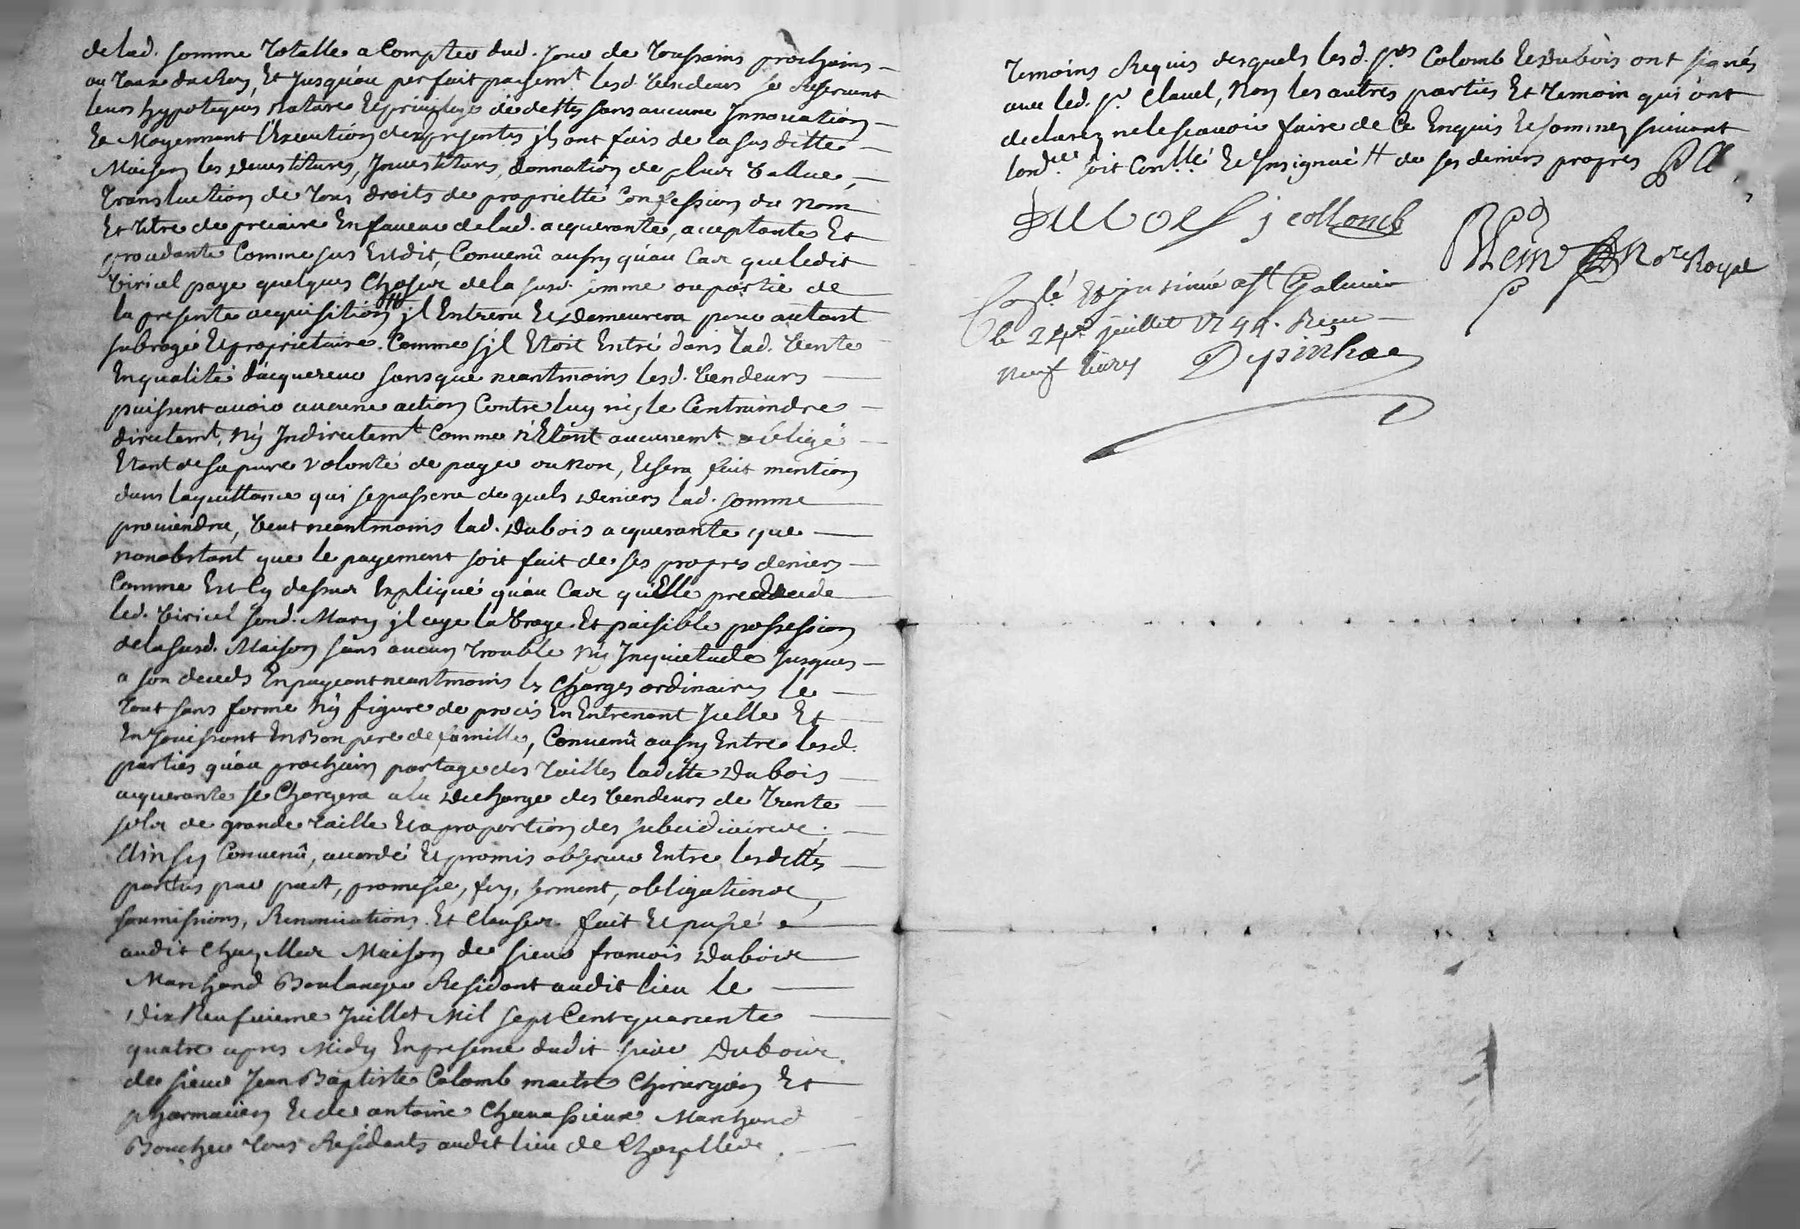 de lad. somme totalle a compter dud. jour de toussains prochains
au taux du Roy, Et jusqu'au perfait payemt. lesd. vendeurs se Reservent
leurs hypoteques nature Et privilege de dettes sans aucune Innovation
Et Moyennant l'Execution des presentes jls ont fais de la sus ditte
Maison les devestitures, Investitures, donnation de plus vallue,
translaction de tous droits de proprietté Confession du nom
Et titre de precaire En faveur de lad. acquerante, acceptante Et
procedante Comme sus Est dit, Convenû aussy qu'au Cas que ledit
Viricel paye quelques Choses de la susd. somme ou partie de
la presente acquisition jl Entrera Et demeurera pour autant
subrogé Et proprietaire. Comme s'jl Etoit Entré dans lad. Vente
En qualité d'acquereur sans que neantmoins lesd. Vendeurs
puissent avoir aucune action Contre luy ny le Contraindre
directemt. Ny Indirectemt. Comme n'Etant aucunemt. obligé
Etant de sa pure volonté de payer ou non, Et sera fait mention
dans la quittance qui se passera de quels deniers lad. somme
proviendra, veut neantmoins lad. Dubois acquerante que
nonobstant que le payement soit fait de ses propres deniers
Comme Est Cy dessus Expliqué qu'au Cas qu'Elle predecede
led. Viricel sond. Mary jl aye la vraye Et paisible possession
de la susd. Maison sans aucun trouble Ny Inquietude Jusques
a son deceds En payeant neantmoins les Charges ordinaires le
tout sans forme Ny figure de procès En Entrenant Icelle Et
En Jouissant En Bon pere de famille, Convenû aussy Entre lesd.
parties qu'au prochain partage des tailles laditte Dubois
acquerante se Chargera a la decharge des Vendeurs de trente
sols de grande taille Et a proportion des subcidiaires.
Ainsy Convenû, accordé Et promis observer Entre lesdittes
parties par pact, promesse, foy, serment, obligations,
soumissions, Renonciations Et Clauses. fait Et passé a
audit Chazelles Maison de sieur francois Dubois
Marchand Boulanger Residant audit lieu le
dix Neufvieme Juillet Mil sept Cent quarente
quatre apres Midy En presence dudit sieur Dubois.
de sieur Jean Baptiste Colomb maitre Chirurgien Et
pharmacien Et de antoine Chavassieux Marchand
Boucher tous Residants audit lieu de Chazelles.
temoins Requis desquels lesd. srs. Colomb Et Dubois ont signés
avec led. sr. Clavel, Non les autres parties Et temoin qui ont
declarez ne le scavoir faire de Ce Enquis Et sommez suivant
lordce. soit Conllé Et Insignué H de ses deniers propres
DUBOIS jcollomb
notre Royal
Conlé Et jnsinué a St Galmier
le 24e juillet 1744. Reçu
neuf livres